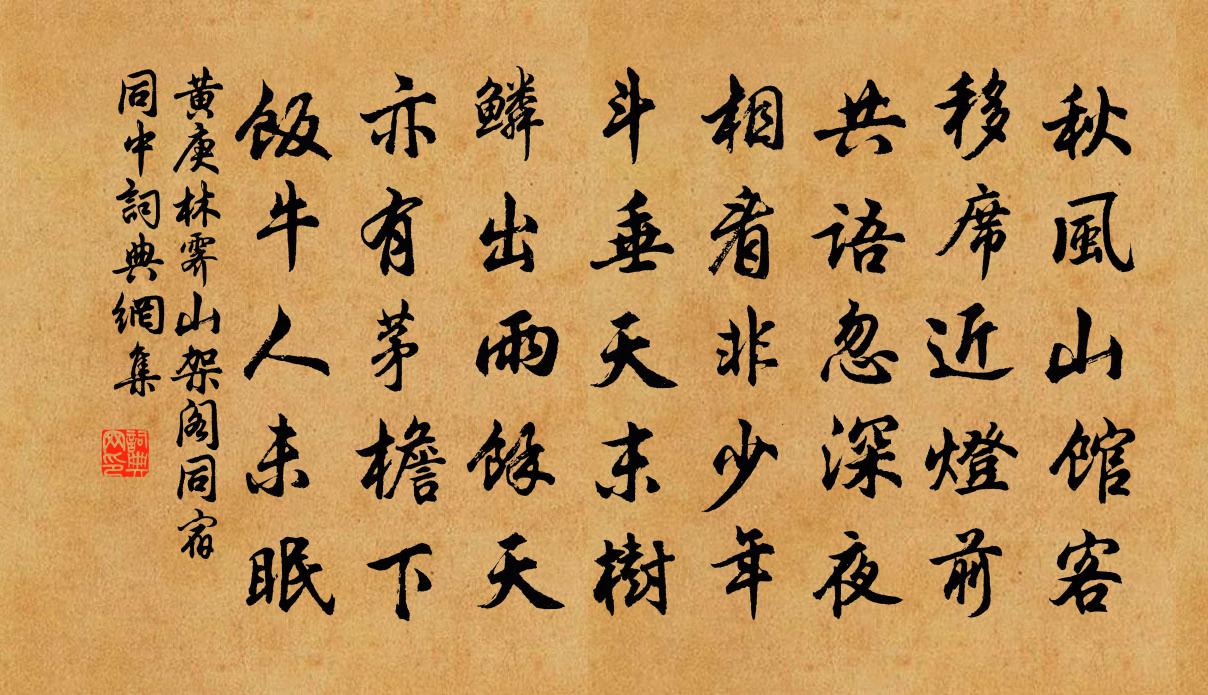 秋風山館客
移席近燈前
共語忽深夜
相看非少年
斗垂天末樹
鱗出雨餘天
亦有茅檐下
飯牛人未眠
黃庚林霽山架閣同宿
同中詞典網集
詞典